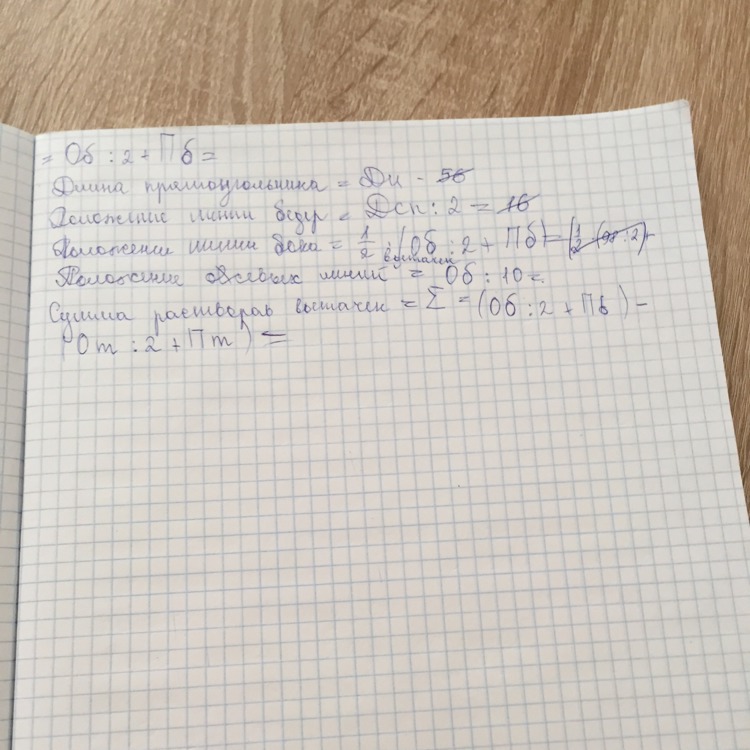 = Об : 2 + Пб =
Длина прямоугольника = Ди - 56
Положение линии бедр = Дсп : 2 = 16
Положение линии бока = 1/2 · (Об : 2 + Пб) =
вытачек
Положение осевых линий = Об : 10 =
Сумма растворав вытачек = Σ = (Об : 2 + Пб) -
(От : 2 + Пт) =